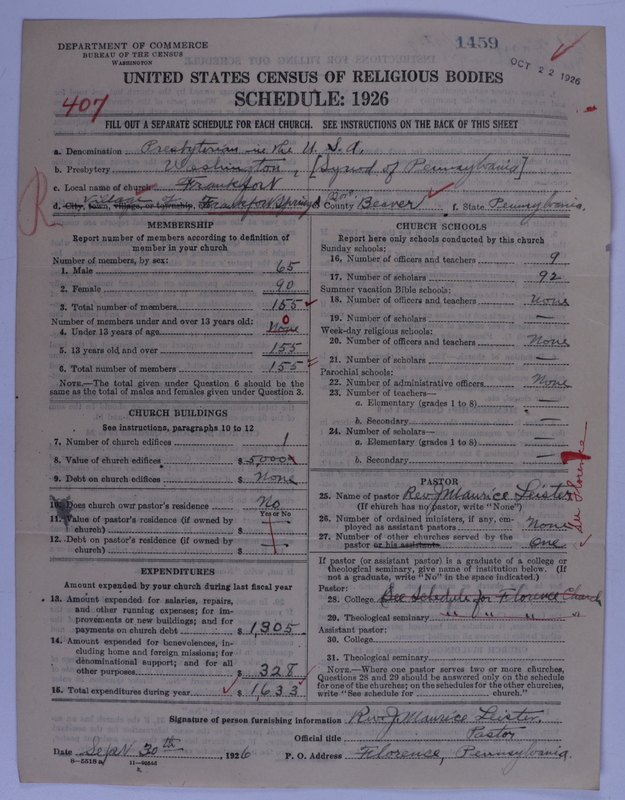 DEPARTMENT OF COMMERCE
BUREAU OF THE CENSUS
WASHINGTON
1459
OCT 22 1926
UNITED STATES CENSUS OF RELIGIOUS BODIES
SCHEDULE: 1926
407
FILL OUT A SEPARATE SCHEDULE FOR EACH CHURCH. SEE INSTRUCTIONS ON THE BACK OF THIS SHEET
a. Denomination Presbyterian in the U.S.A.
b. Presbytery Washington, [Synod of Pennsylvania]
c. Local name of church Frankfort
R
d. City, town, village, or township, Village of Frankfort Springs Boro. County Beaver f. State Pennsylvania.
MEMBERSHIP
Report number of members according to definition of
member in your church
Number of members, by sex:
1. Male 65
2. Female 90
3. Total number of members 155
Number of members under and over 13 years old:
4. Under 13 years of age None 0
5. 13 years old and over 155
6. Total number of members 155
NOTE.—The total given under Question 6 should be the
same as the total of males and females given under Question 3.
CHURCH BUILDINGS
See instructions, paragraphs 10 to 12
7. Number of church edifices 1
8. Value of church edifices $5000
9. Debt on church edifices $None
10. Does church own pastor's residence No
Yes or No
11. Value of pastor's residence (if owned by
church) $ —
12. Debt on pastor's residence (if owned by
church) $ —
EXPENDITURES
Amount expended by your church during last fiscal year
13. Amount expended for salaries, repairs,
and other running expenses; for im-
provements or new buildings; and for
payments on church debt $1,305
14. Amount expended for benevolences, in-
cluding home and foreign missions; for
denominational support; and for all
other purposes $328
15. Total expenditures during year $1,633
CHURCH SCHOOLS
Report here only schools conducted by this church
Sunday schools:
16. Number of officers and teachers 9
17. Number of scholars 92
Summer vacation Bible schools:
18. Number of officers and teachers None
19. Number of scholars —
Week-day religious schools:
20. Number of officers and teachers None
21. Number of scholars —
Parochial schools:
22. Number of administrative officers None
23. Number of teachers—
a. Elementary (grades 1 to 8) —
b. Secondary —
24. Number of scholars—
a. Elementary (grades 1 to 8) —
b. Secondary —
See Florence
PASTOR
25. Name of pastor Rev. J. Maurice Leister
(If church has no pastor, write "None")
26. Number of ordained ministers, if any, em-
ployed as assistant pastors None
27. Number of other churches served by the
pastor or his assistants One
If pastor (or assistant pastor) is a graduate of a college or
theological seminary, give name of institution below. (If
not a graduate, write "No" in the space indicated.)
Pastor:
28. College See Schedule for Florence Church
29. Theological seminary " " " "
Assistant pastor:
30. College
31. Theological seminary
NOTE.—Where one pastor serves two or more churches,
Questions 28 and 29 should be answered only on the schedule
for one of the churches; on the schedules for the other churches,
write "See schedule for ........ church."
Signature of person furnishing information Rev. J. Maurice Leister
Official title Pastor
Date Sept. 30th, 1926 P. O. Address Florence, Pennsylvania.